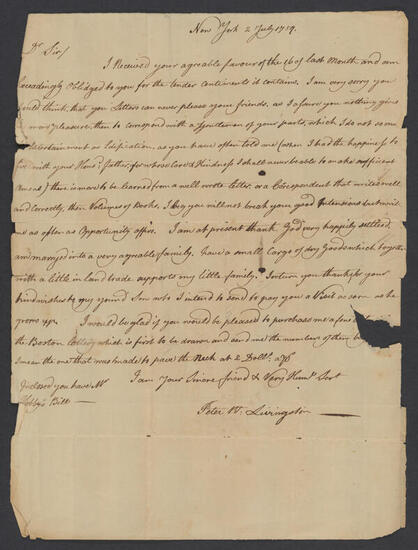 New York 2 July 1759.
Dr Sir/
I Received your agreable favour of the 16 of last Month and am
Exceedingly Obliged to you for the tender continents it contains. I am very sorry you
should think, that you Letters can never please your friends, as I assure you nothing gives
more pleasure, then to correspond with a Gentleman of your parts, which I do not some
Entertainment as Edification, as you have often told me (when I had the happiness to
live with your Hond. father, for whose Care & Kindness I shall never be able to make sufficient
amends) there is more to be learned from a well wrote letter, or a Corispondent that writes well
and Correctly, then Volumes of Books, I beg you will not break your good Intensions but write
me as often as Opportunity offers. I am at present thank God very happily settled,
am marryed into a very agreable family. have a small Cargo of dry Goods which together
with a little in land trade supports my little family. I return you thanks for your
kind wishes to my young Son who I intend to send to pay you a Visit as soon as he
grows up. I would be glad if you would be pleased to purchase me a few
the Boston Lottery which is first to be drawn and send me the numbers of them
I mean the one that was made to pave the Neck at 2 Doll.
Inclosed you have Mr
Bill
I am Your Sincere friend & Very Humb Sert
Peter W. Livingston